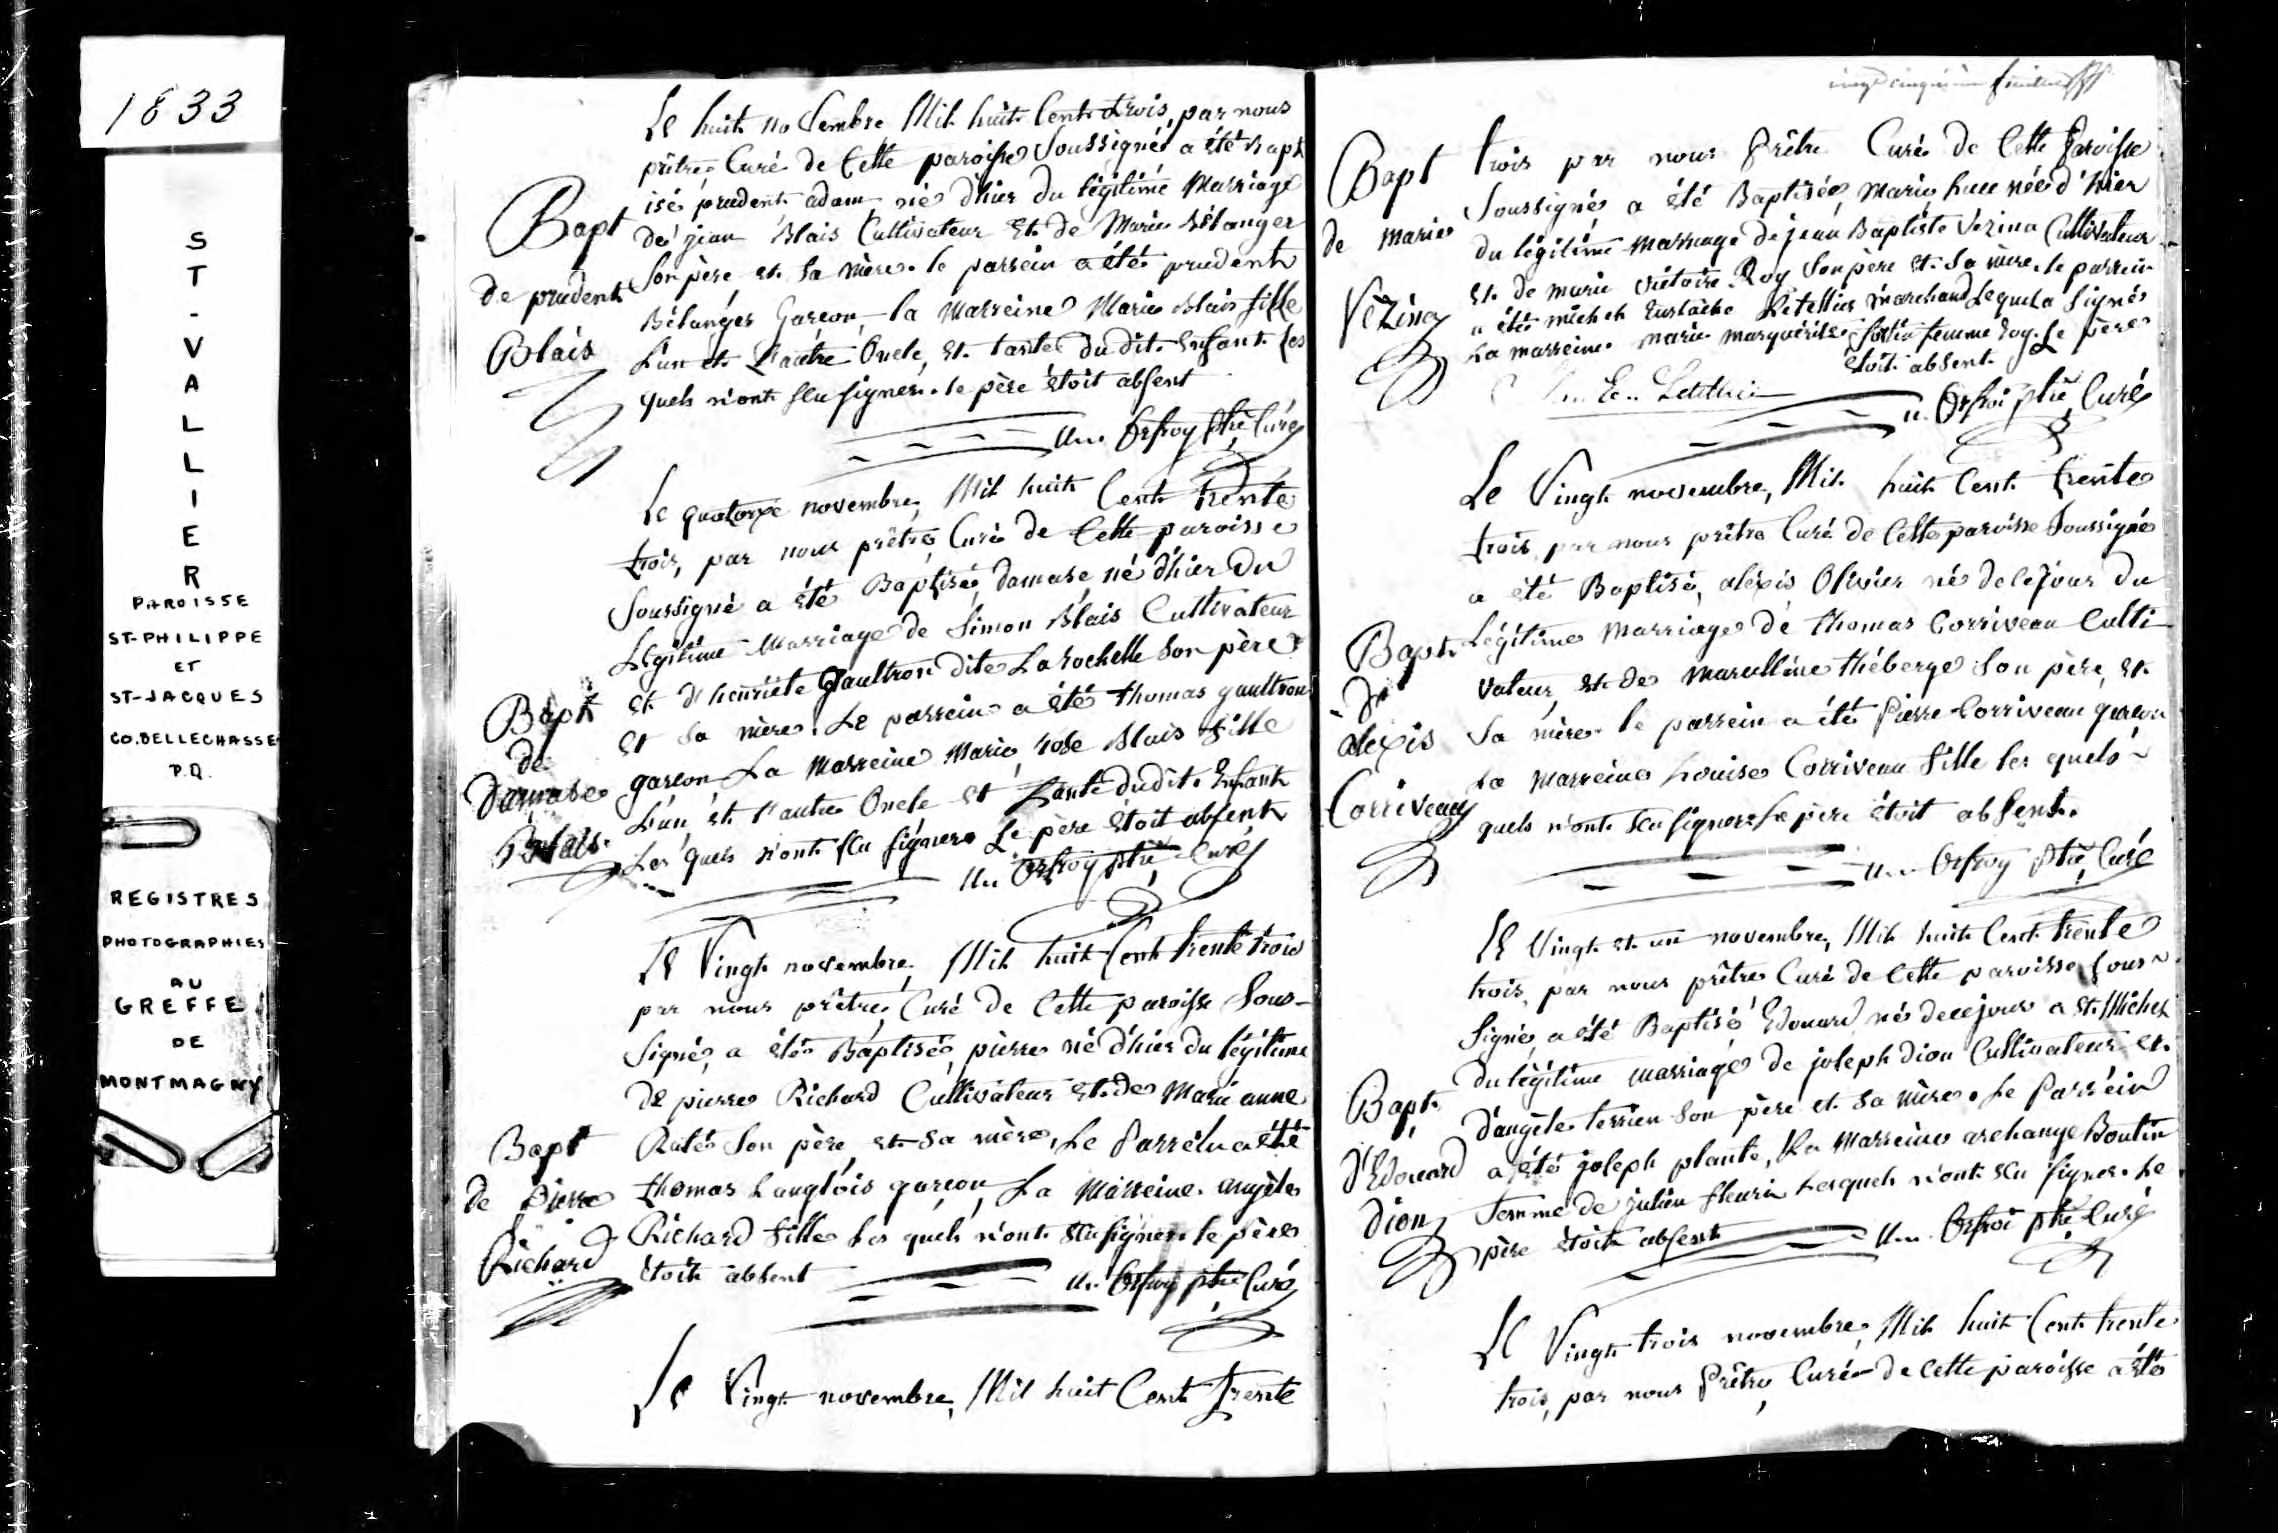 1833
ST-VALLIER
PAROISSE
ST-PHILIPPE
ET
ST-JACQUES
CO. BELLECHASSE
P.Q.
REGISTRES
PHOTOGRAPHIES
AU
GREFFE
DE
MONTMAGNY
Le huit novembre Mil huit Cent trois, par nous
prêtre Curé de Cette paroisse Soussigné a été Bapt
isé prudent adam né d'hier du légitime Marriage
de jean Blais Cultivateur Et de Marie Bélanger
Son père et Sa mère. le parrein a été prudent
Bélanger Garcon, la Marreine Marie Blais fille
L'un et L'autre Oncle, et tante du dit Enfant Les
quels n'ont sçu signer. le père étoit absent
Bapt
de prudent
Blais
Orfroy ptre Curé
Le quatorze novembre, Mil huit Cent trente
trois, par nous prêtre Curé de Cette paroisse
Soussigné a été Baptisé, damase, né d'hier du
Légitime Marriage de Simon Blais Cultivateur
et d'henriete Gaultron dite Larochelle Son père
et Sa mère. Le parrein a été thomas gaultron
garcon La Marreine Marie rose Blais fille
L'un et l'autre Oncle et tante dudit Enfant
Les quels n'ont sçu signer. Le père étoit absent
Bapt
de
Damase
Blais
Orfroy ptre Curé
Le Vingt novembre, Mil huit Cent trente trois
par nous prêtre, Curé de Cette paroisse Sous-
signé, a été Baptisé, pierre né d'hier du légitime
de pierre Richard Cultivateur et de Marie anne
Son père et Sa mère, Le Parrein a été
thomas Langlois garcon, La Marreine angèle
Richard fille Les quels n'ont sçu signer. le père
étoit absent
Bapt
de Pierre
Richard
Orfroy ptre Curé
Le Vingt novembre, Mil huit Cent trente
vingt cinquième feuillet
trois par nous Prêtre Curé de Cette Paroisse
Soussigné a été Baptisée, Marie, née d'hier
du légitime marriage de jean Baptiste Vézina Cultivateur
et de marie victoire Roy Son père et Sa mère. le parrein
a été michel Eustache Letellier marchand Lequel a Signé
La marreine marie marguérite fortin femme Roy. Le père
étoit absent.
Bapt
de marie
Vézina
Letellier
Orfroi ptre Curé
Le Vingt novembre, Mil huit Cent trente
trois, par nous prêtre Curé de Cette paroisse Soussigné
a été Baptisé, aléxis Olivier né de ce jour du
Légitime Marriage de thomas Corriveau Culti-
vateur, et de marcelline théberge Son père, et
Sa mère. le parrein a été Pierre Corriveau garcon
La Marreine Louise Corriveau fille les quels
quels n'ont sçu signer Le père étoit absent.
Bapt
de
aléxis
Corriveau
Orfroy ptre Curé
Le Vingt et un novembre, Mil huit Cent trente
trois, par nous prêtre Curé de Cette paroisse Sous-
signé, a été Baptisé Edouard né de ce jour a St. Michel
du légitime marriage de joseph dion Cultivateur et
d'angèle terrien Son père et Sa mère. Le Parrein
a été joseph plante, La Marreine archange Boutin
femme de julien fleuri Lesquels n'ont sçu signer. Le
père étoit absent
Bapt
d'Edouard
dion
Orfroi ptre Curé
Le Vingt trois novembre, Mil huit Cent trente
trois, par nous Prêtre, Curé de Cette paroisse a été